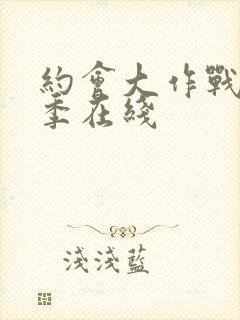 約會大作戰
季在綫
淺淺藍